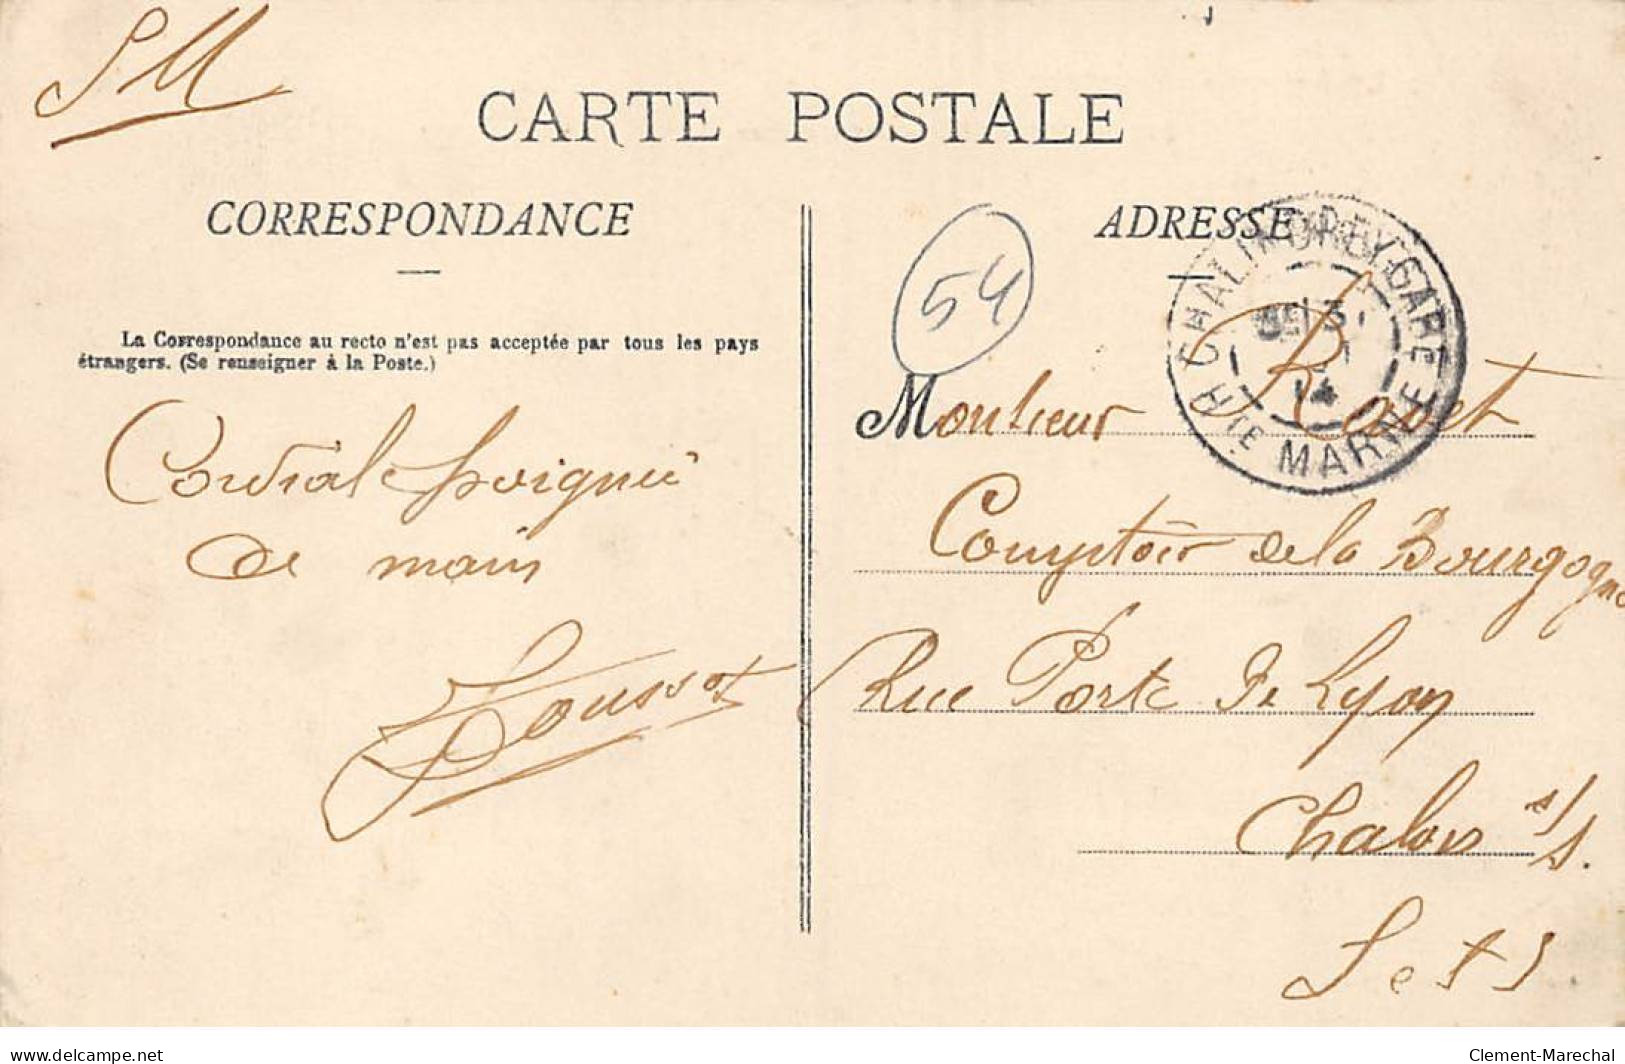 SM
CARTE POSTALE
CORRESPONDANCE
La Correspondance au recto n'est pas acceptée par tous les pays
étrangers. (Se renseigner à la Poste.)
Cordiale poignée
de main
Toussot
ADRESSE
54
CHALINDREY-GARE
HTE MARNE
14
Monsieur
Comptoir de la Bourgogne
Rue Porte de Lyon
Chalon s/s.
S et S
delcampe.net
Clement-Marechal